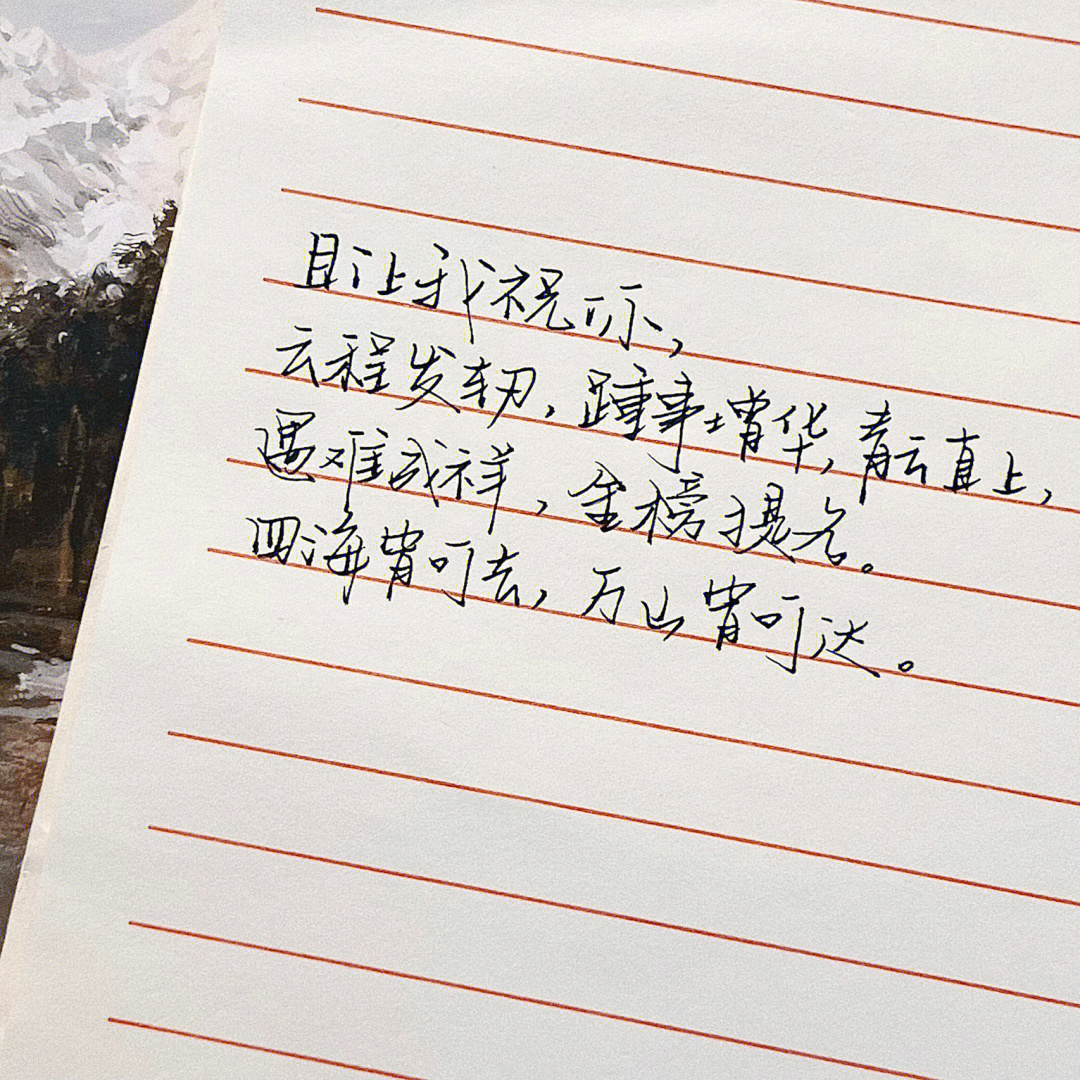 且让我祝你，
云程发轫，踵事增华，青云直上，
遇难成祥，金榜提名。
四海皆可去，万山皆可达。